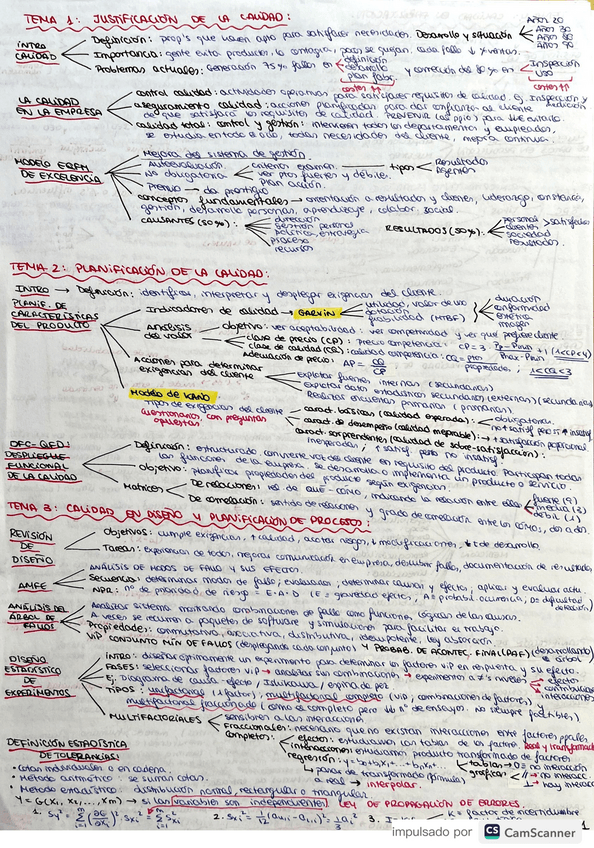 TEMA 1: JUSTIFICACIÓN DE LA CALIDAD:
INTRO CALIDAD
Definición: prop's que hacen apto para satisfacer necesidades. Desarrollo y situación
Años 20
Años 30
Años 80
Años 90
Importancia: gente evita productos, lo contagia, pocos se quejan, cada fallo ↓ x ventas.
Problemas actuales: Generación 75% fallos en
definición
desarrollo
plan fabr.
costes ↑↑
y corrección del 80% en
Inspección
USO
costes ↑↑
LA CALIDAD EN LA EMPRESA
control calidad: actividades operativas para satisfacer requisitos de calidad. Ej. inspección y medición
aseguramiento calidad: acciones planificadas para dar confianza al cliente
de que satisface los requisitos de calidad. PREVENIR
calidad total: control y gestión: intervienen todos los departamentos y empleados,
se estudia en todo el ciclo, todas necesidades del cliente, mejora continua.
MODELO EFQM DE EXCELENCIA
Mejora del sistema de gestión
Autoevaluación
criterios examen
ver ptos fuertes y débiles
plan acción.
tipos
Resultados
Agentes
No obligatoria
Premio → da prestigio
conceptos fundamentales → orientación a resultados y clientes, liderazgo, constancia,
gestión, desarrollo personas, aprendizaje, colabor. social.
CAUSANTES (50%):
dirección
gestión personal
política, estrategia
proceso
recursos
RESULTADOS (50%):
personal
clientes
satisfechos
sociedad
resultados.
TEMA 2: PLANIFICACIÓN DE LA CALIDAD:
INTRO → Definición: identificar, interpretar y desplegar exigencias del cliente.
PLANIF. DE CARACTERÍSTICAS DEL PRODUCTO
Indicadores de calidad → GARVIN
utilidad, valor de uso
dotación
fiabilidad (MTBF)
duración
conformidad
externos
imagen
ANÁLISIS del valor
objetivo: ver aceptabilidad: ver competitividad y ver que prefiere cliente
clase de precio (CP): Precio competencia:
clase de calidad (CQ): calidad competencia:
Adecuación de precio: AP = CQ/CP
Acciones para determinar exigencias del cliente
explotar fuentes internas (secundarias)
explotar datos estadísticos secundarios (externas) (secundarias)
Realizar encuestas primarias (primarias).
Modelo de KANO
Tipos de exigencias del cliente
Cuestionarios con preguntas opuestas
caract. básicas (calidad esperada): obligatorias.
caract. de desempeño (calidad mejorable):
caract. sorprendentes (calidad de sobre-satisfacción):
inesperadas, ↑ satisf. pero no insatisf.
QFC-QFD: DESPLIEGUE FUNCIONAL DE LA CALIDAD
Definición: estructurado convierte voz del cliente en requisito del producto. Participan todas
las funciones de la empresa, se desarrolla o implementa un producto o servicio.
objetivo: planificar propiedades del producto según exigencias
Matrices
De relaciones: vs de que - como, indicando la relación entre ellos
fuerte (9)
media (3)
débil (1)
De correlación: sentido de relaciones y grado de correlación entre los CÓMO, dos a dos.
TEMA 3: CALIDAD EN DISEÑO Y PLANIFICACIÓN DE PROCESOS:
REVISIÓN DE DISEÑO
Objetivos: cumple exigencias, ↑ calidad, acotar riesgos, ↓ modificaciones, ↓ t de desarrollo.
Tareas: experiencias de todos, mejorar comunicación en empresa, descubrir fallos, documentación de resultados
AMFE
ANÁLISIS DE MODOS DE FALLO Y SUS EFECTOS.
Secuencia: determinar modos de fallo; evaluarlos; determinar causas y efecto; aplicar y evaluar actu.
NPR: nº de prioridad de riesgo = E·A·D (E = gravedad efecto, A = probabil. ocurrencia, D = dificultad detección)
ANÁLISIS DEL ÁRBOL DE FALLOS
Analizar sistema mostrando combinaciones de fallo como funciones lógicas de las causas.
A veces se recurren a paquetes de software y simulaciones para facilitar el trabajo.
Propiedades: conmutativa, asociativa, distributiva, idempotente, ley absorción
VIP CONJUNTO MÍN DE FALLOS (desplegando cada conjunto) Y PROBAB. DE ACONTEC. FINAL (PAF) (desarrollando árbol)
DISEÑO ESTADÍSTICO DE EXPERIMENTOS
INTRO: diseñar óptimamente un experimento para determinar los factores VIP en respuesta y su efecto.
FASES: seleccionar factores VIP → analizar sus combinaciones → experimentos a ≠'s niveles
efectos
contribuciones
interacciones
Ej. Diagrama de causa-efecto, Ishikawa, espina de pez
TIPOS: unifactorial (1 factor); multifactorial completo (VIP, combinaciones de factores) y
multifactorial fraccionado (como es completo pero ↓↓ nº de ensayos. No siempre factibles)
MULTIFACTORIALES
sensibles a las interacciones
Fraccionales: necesario que no existan interacciones entre factores ppales.
Completos:
efectos:
interacciones: evaluamos producto transformado de factores
regresión:
tablas → 0 no interacción
gráficos
// → no interacc.
hay interacc
para x transformado (fórmula)
a real → interpolar.
DEFINICIÓN ESTADÍSTICA DE TOLERANCIAS:
• Cotas individuales o en cadena.
• Método aritmético: se suman cotas.
• Método estadístico: distribución normal, rectangular o triangular.
Y = G(X1, X2, ..., Xm) → si las variables son independientes LEY DE PROPAGACIÓN DE ERRORES.
k = factor de incertidumbre
1
impulsado por CS CamScanner